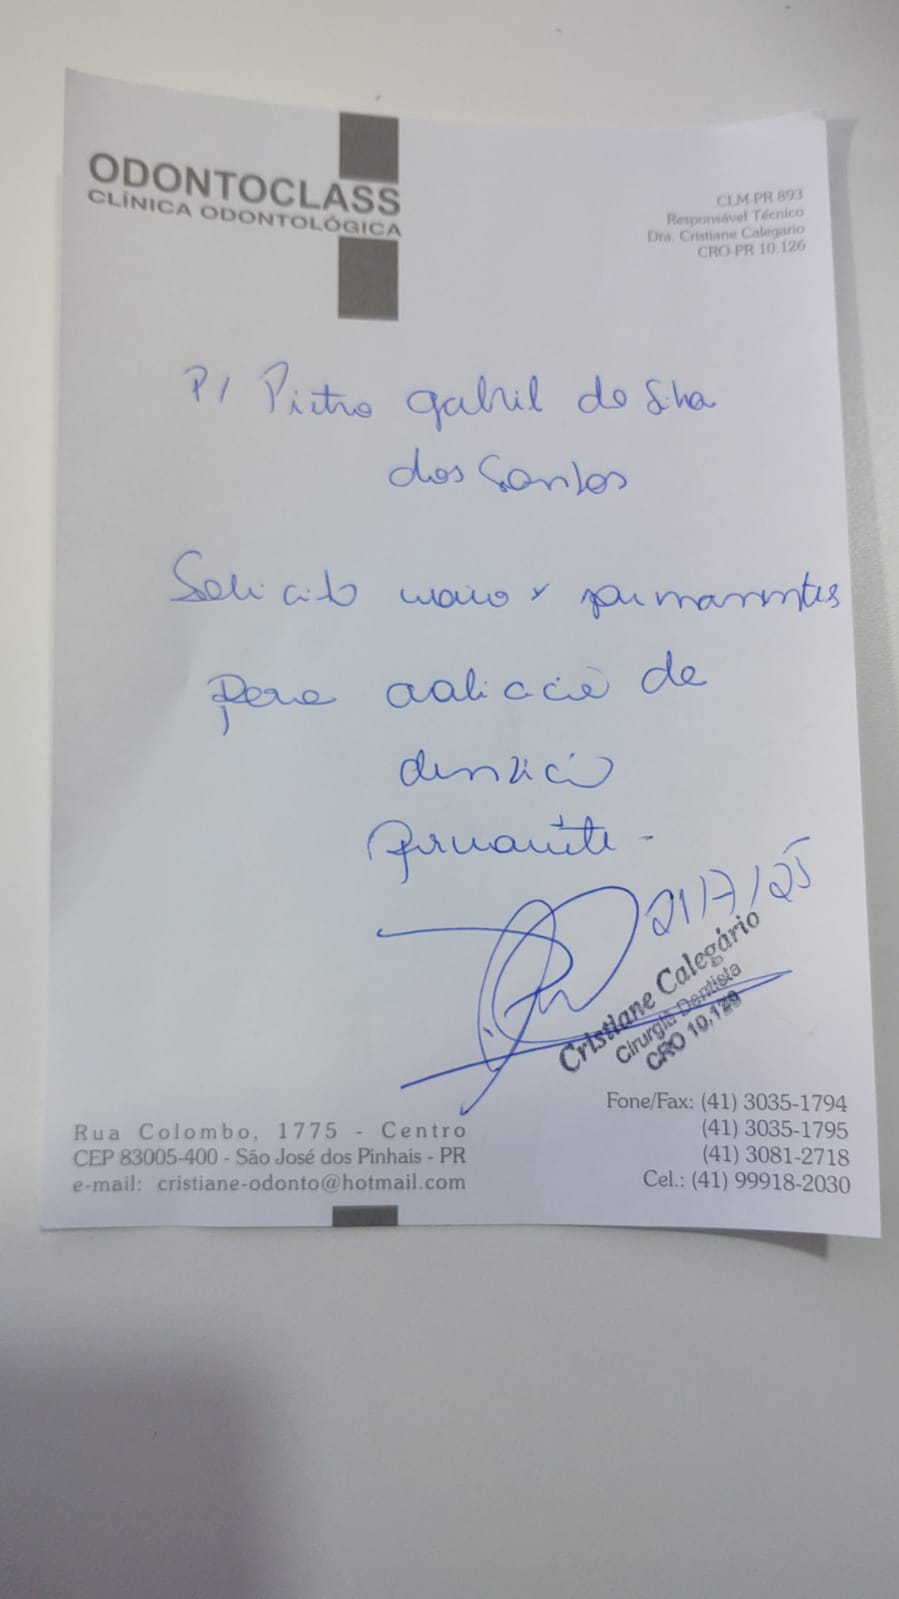 ODONTOCLASS
CLÍNICA ODONTOLÓGICA
CLM-PR 893
Responsável Técnico
Dra. Cristiane Calegario
CRO-PR 10.126
P/ Pietro Gabriel da Silva
dos Santos
Solicito raio x
para avaliação de
dentição
permanente -
21/7/25
Cristiane Calegário
Cirurgiã Dentista
CRO 10.129
Rua Colombo, 1775 - Centro
CEP 83005-400 - São José dos Pinhais - PR
e-mail: cristiane-odonto@hotmail.com
Fone/Fax: (41) 3035-1794
(41) 3035-1795
(41) 3081-2718
Cel.: (41) 99918-2030